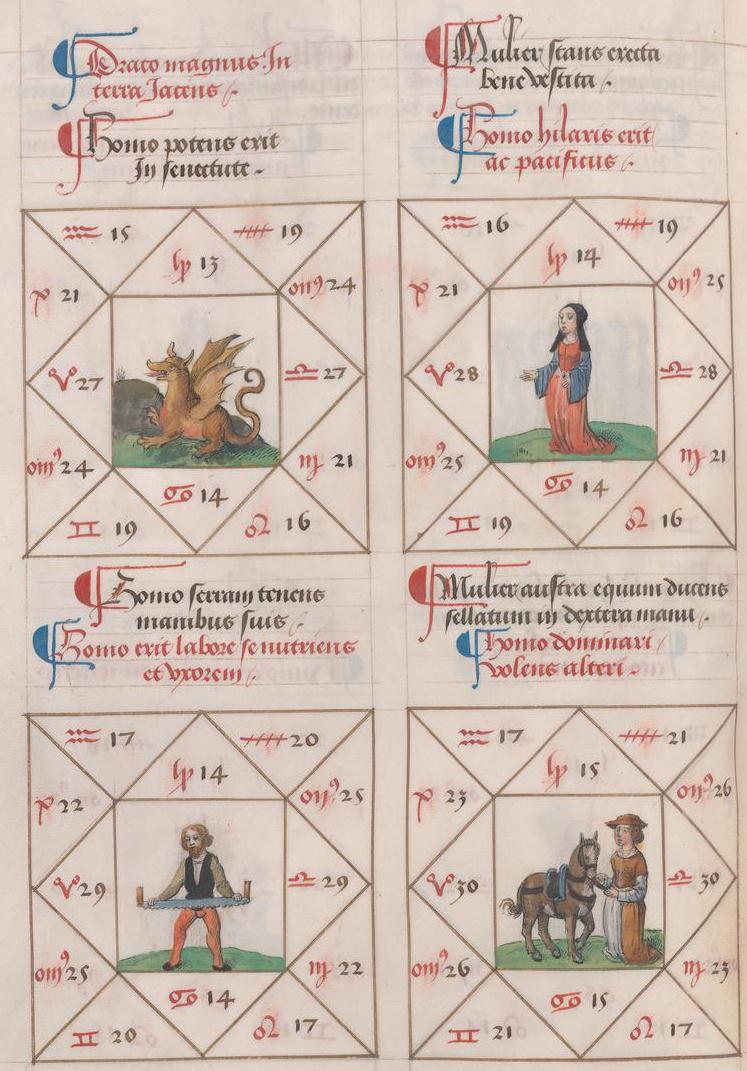 Draco magnus In
terra Jacens
Homo potens erit
In senectute
♒ 15
♐ 19
♑ 13
♓ 21
♏ 24
♈ 27
♎ 27
♉ 24
♍ 21
♋ 14
♊ 19
♌ 16
Mulier stans erecta
bene vestita
Homo hilaris erit
ac pacificus
♒ 16
♐ 19
♑ 14
♓ 21
♏ 25
♈ 28
♎ 28
♉ 25
♍ 21
♋ 14
♊ 19
♌ 16
Homo serram tenens
manibus suis
Homo erit labore se nutriens
et vxorem
♒ 17
♐ 20
♑ 14
♓ 22
♏ 25
♈ 29
♎ 29
♉ 25
♍ 22
♋ 14
♊ 20
♌ 17
Mulier austra equum ducens
sellatum in dextera manu
Homo dominari
volens alteri
♒ 17
♐ 21
♑ 15
♓ 23
♏ 26
♈ 30
♎ 30
♉ 26
♍ 23
♋ 15
♊ 21
♌ 17